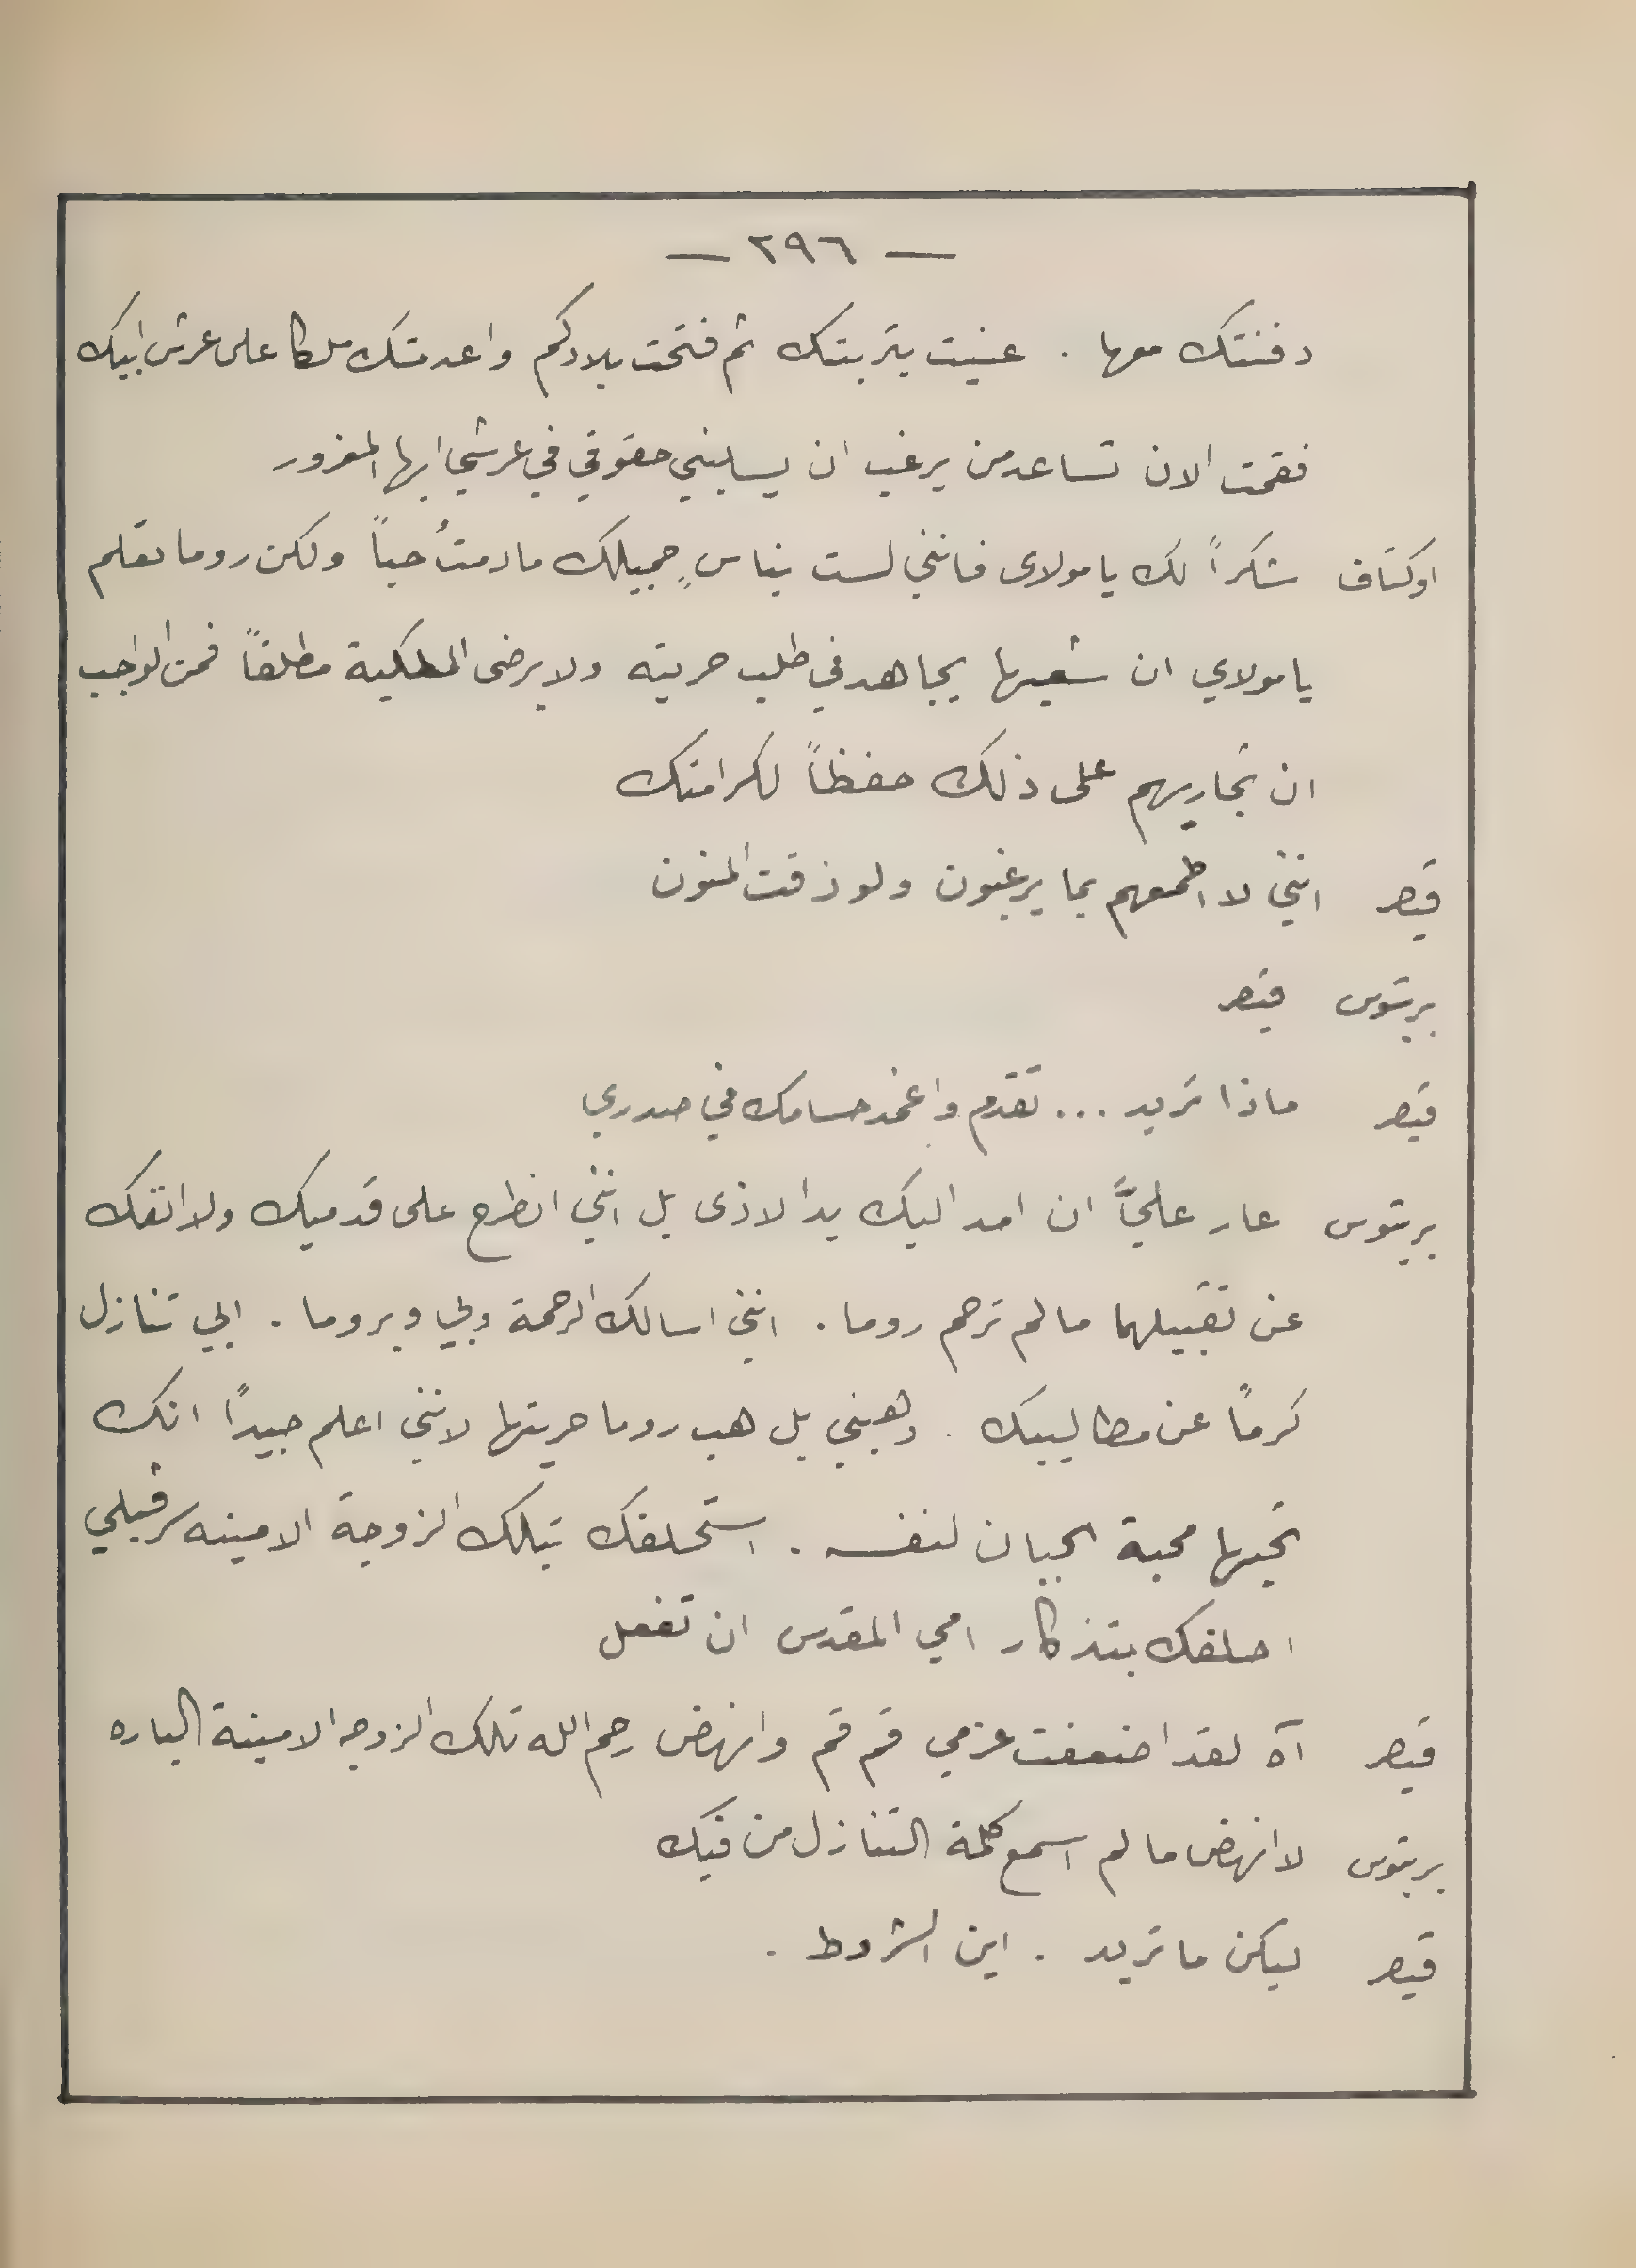 — ٢٩٦ —
دفنتك معها . عنيت بتربيتك ثم فتحت بلادكم واعدمتك ملكا على عرش ابيك
فقمت الان تساعد من يرغب ان يسلبني حقوقي في عرشي ايها المغرور
اوكتاف شكراً لك يا مولاى فانني لست بناسٍ جميلك ما دمتُ حياً ولكن روما تعلم
يا مولاي ان شعبها يجاهد في طلب حريته ولا يرضى الملكية مطلقاً فمن الواجب
ان تجاريهم على ذلك حفظاً لكرامتك
قيصر انني لا اطمعهم بما يرغبون ولو ذقت المنون
بريتوس قيصر
قيصر ماذا تريد ... تقدم واغمد حسامك في صدري
بريتوس عار عليَّ ان امد اليك يد الاذى بل انني انطرح على قدميك ولا انفك
عن تقبيلهما ما لم ترحم روما . انني اسالك الرحمة وبي وبروما . ابي تنازل
كرماً عن مطاليبك . وهبني بل هب روما حريتها لانني اعلم جيداً انك
تحبها محبة الجبان لنفسه . استحلفك بتلك الزوجة الامينه سرفيلي
احلفك بتذكار امي المقدس ان تفعل
قيصر آه لقد اضعفت عزمي قم قم وانهض رحم الله تلك الزوجه الامينة الباره
بريتوس لا انهض ما لم اسمع كلمة التنازل من فيك
قيصر ليكن ما تريد . اين الشروط .